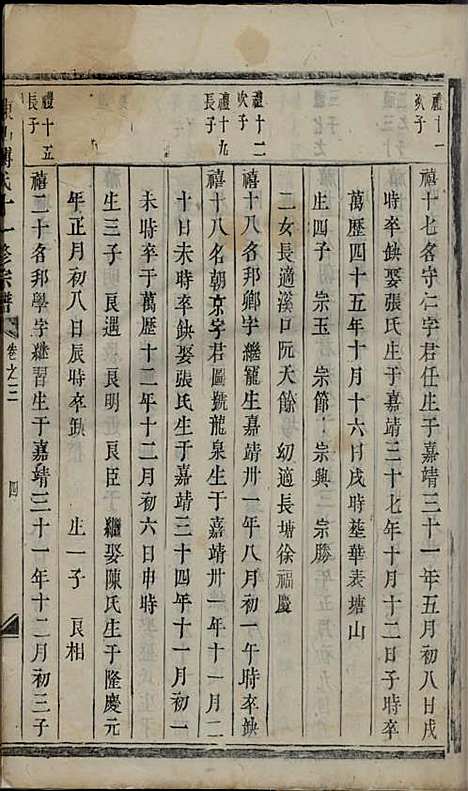 禮十一
次子
禧十七名守仁字君任生于嘉靖三十一年五月初八日戌
時卒缺娶張氏生于嘉靖三十七年十月十二日子時卒
萬歷四十五年十月十六日戌時塟華表塘山
生四子　宗玉　宗節　宗興　宗勝
二女長適溪口阮天餘　幼適長塘徐福慶
禮十二
次子
禧十八名邦卿字繼寵生于嘉靖卅一年八月初一午時卒缺
禮十九
長子
禧十八名朝京字君圖號龍泉生于嘉靖卅一年十一月二
十日未時卒缺娶張氏生于嘉靖三十四年十一月初一
未時卒于萬歷十二年十二月初六日申時
生三子　良遇　良明　良臣　繼娶陳氏生于隆慶元
年正月初八日辰時卒缺　生一子　良相
禮十五
長子
禧二十名邦學字繼習生于嘉靖三十一年十二月初三子
氏十一修宗譜
卷之三
四